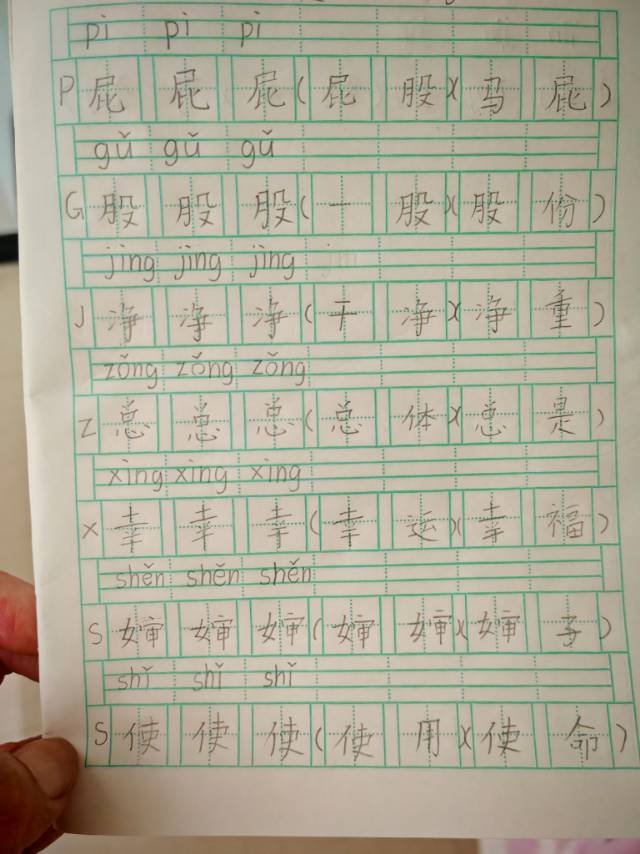 pì pì pì
P 屁 屁 屁 ( 屁 股 ) ( 马 屁 )
gǔ gǔ gǔ
G 股 股 股 ( 一 股 ) ( 股 份 )
jìng jìng jìng
J 净 净 净 ( 干 净 ) ( 净 重 )
zǒng zǒng zǒng
Z 总 总 总 ( 总 体 ) ( 总 是 )
xìng xìng xìng
X 幸 幸 幸 ( 幸 运 ) ( 幸 福 )
shěn shěn shěn
S 婶 婶 婶 ( 婶 婶 ) ( 婶 子 )
shǐ shǐ shǐ
S 使 使 使 ( 使 用 ) ( 使 命 )